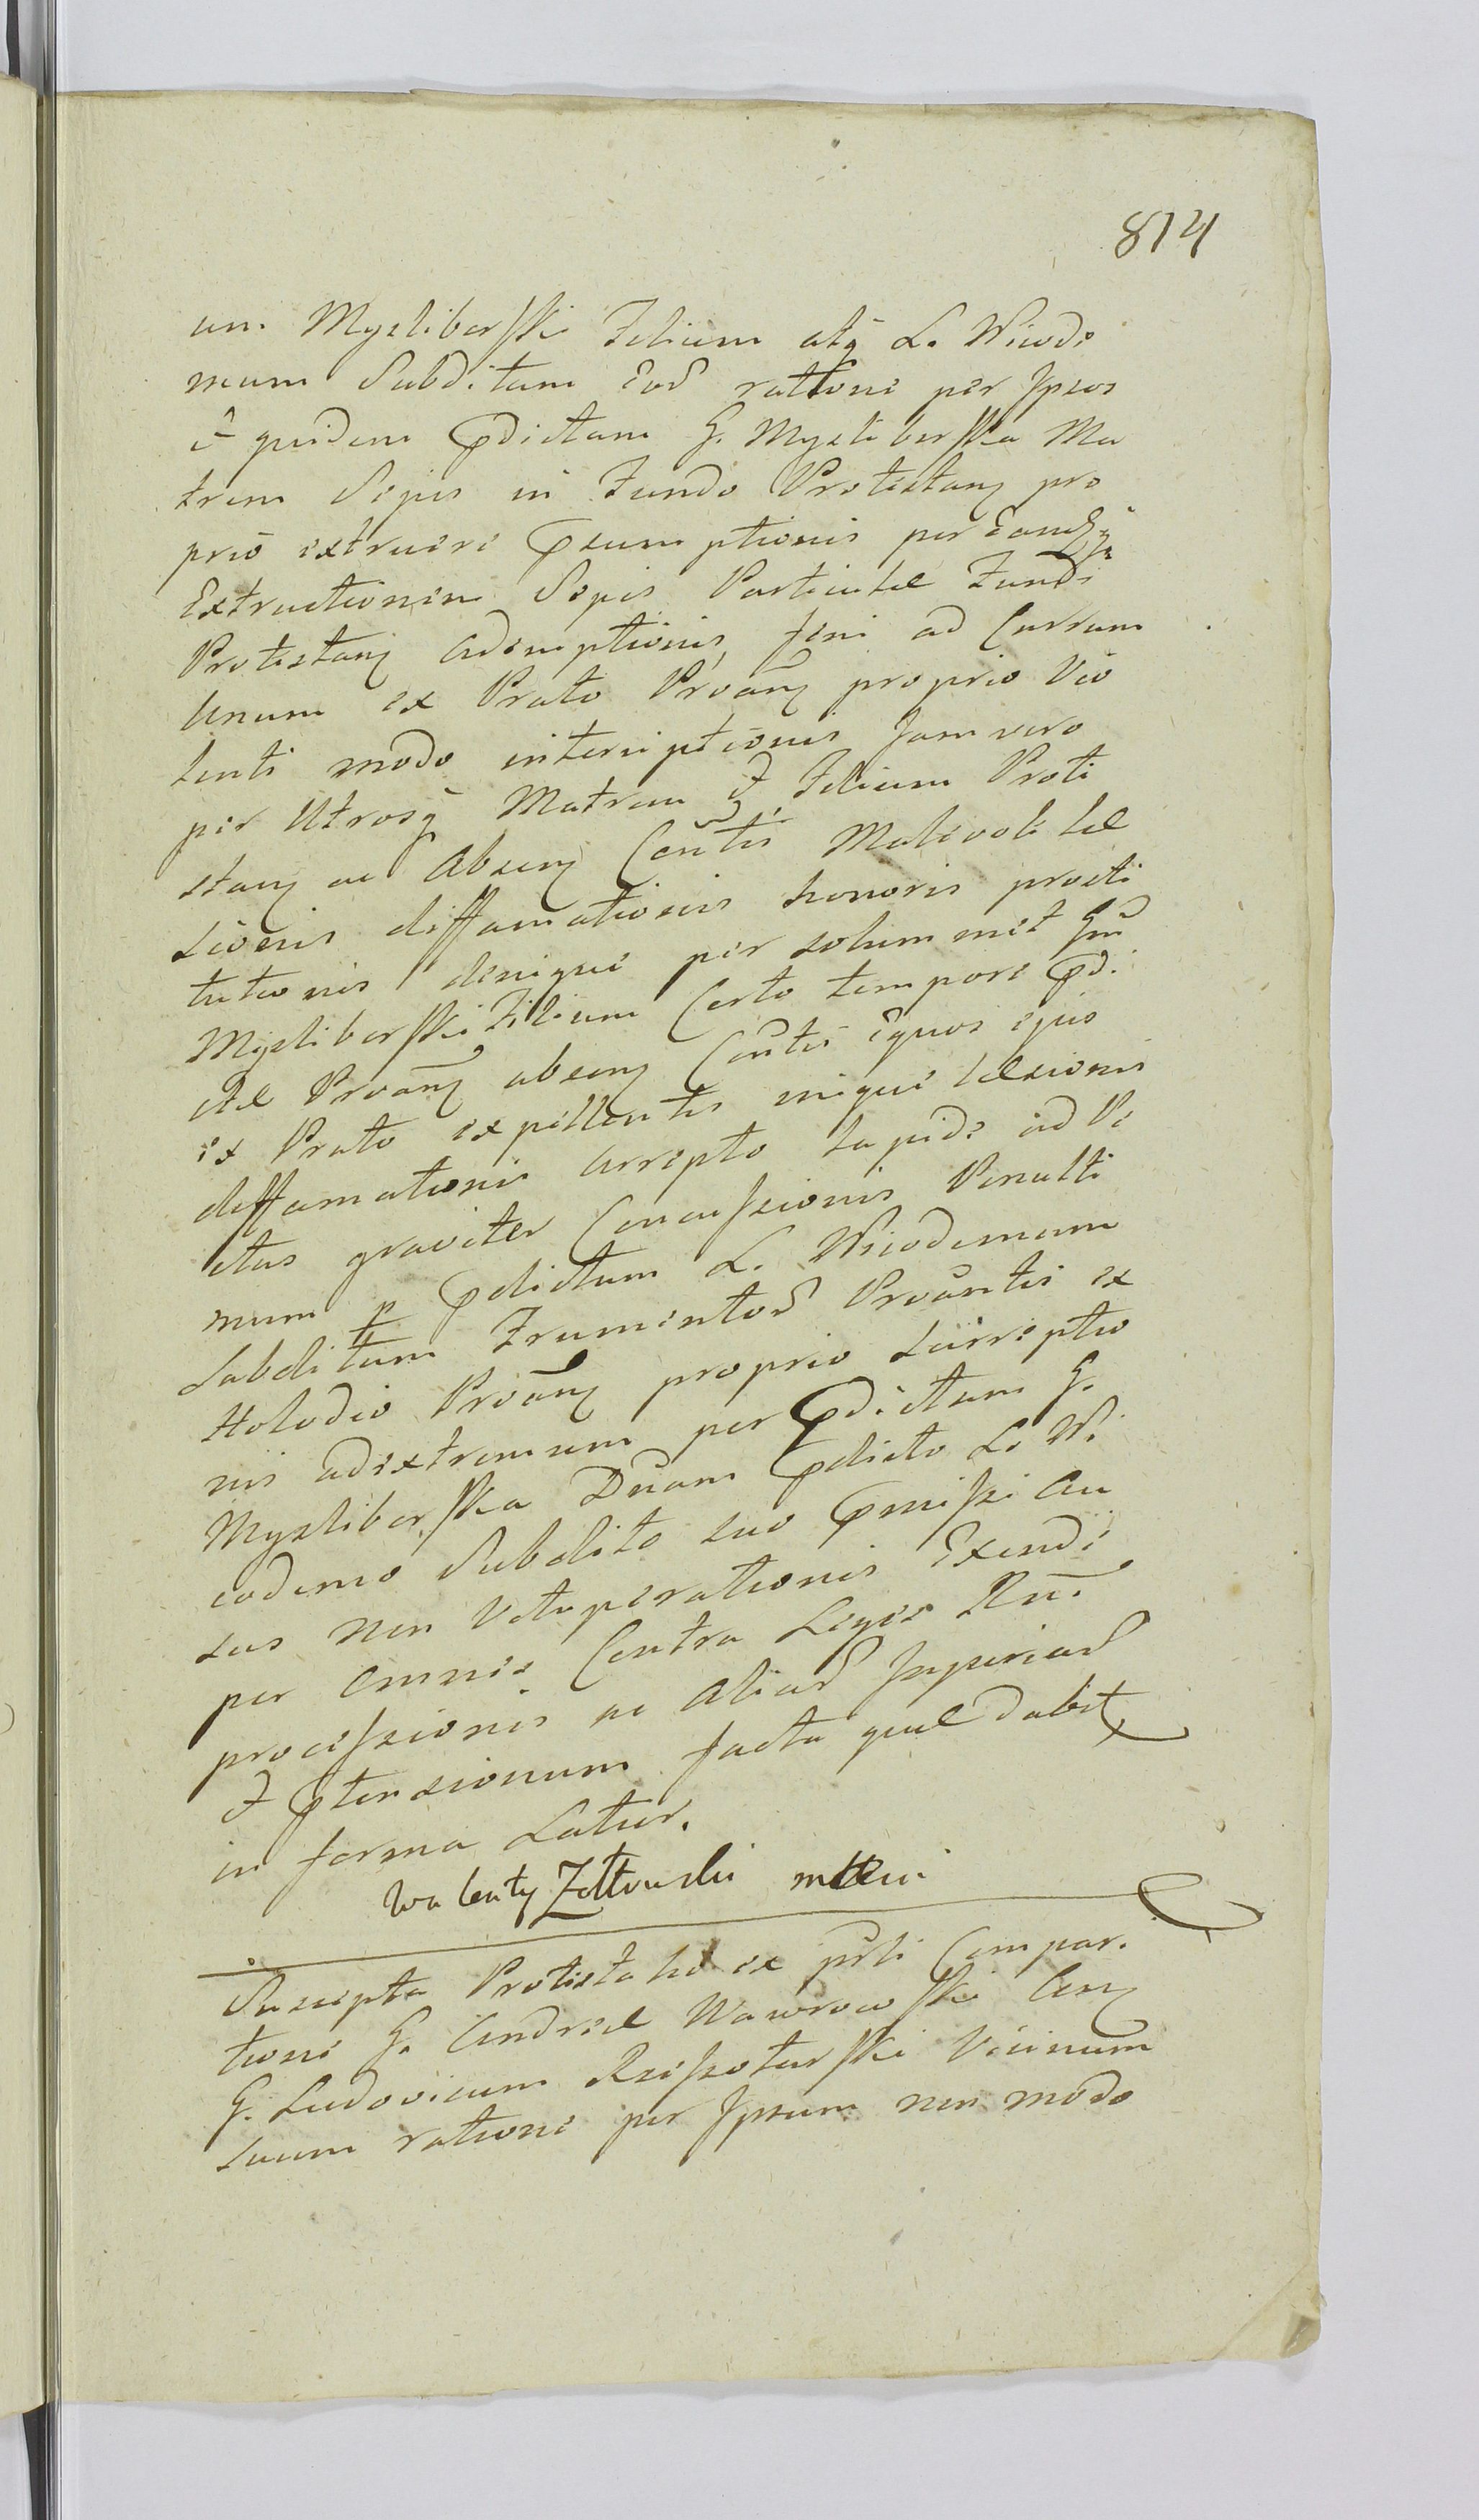 814
um Mysliborski Filium atq̃ L. Nicode
mum Subditum Eod ratione per Ipsos
et quidem Pdictam G. Mysliborska Ma
trem Sepis in Fundo Protestanz pro
prio extruere Psumptionis per Eandz
Extructionem Sepis Particulæ Fundi
Protestanz ademptionis, feni ad Currum
Unum ex Prato Proanz proprio Vio
lenti modo interceptionis Jam vero
per Utrosq̃ Matrem & Filium Prote
stanz ac Absenz Contis Malevolæ læ
sionis diffamationis honoris prosti
tutionis denique per solummet Gm̃
Mysliborski Filium Certo tempore Pd.
Proanz absenz Contis Equos ejus
ex Prato expellentis inique læsionis
diffamationis arrepto lapide ad Pe
ctus graviter Concussionis Penulti
mum p Pdictum L. Nicodemum
Subditum Frumentor Proantis ex
Stolodio Proanz proprio surreptio
nis ad extremum per Pdictam G.
Mysliborska Dnam Pdicto L. Ni
codemo Subdito suo Pmissi Ca
sus non Vituperationis Exinde
per omnes Contra Leges Rñi
processionis ac aliar Injuriar
& Ptensionum facta quæ dabit
in forma Latior.
Walenty Żółtowski mpp
Suscepta Protestatio ex prti Compar.
tione G. Andreæ Wawrowski Conz
G. Ludovicum Rzeszotarski Vicinum
suum ratione per Ipsum non modo